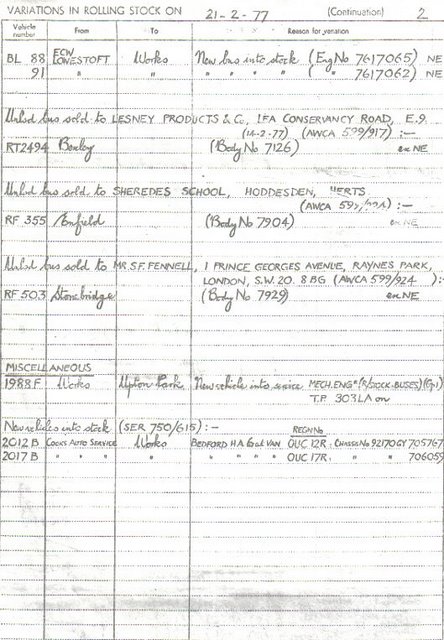 VARIATIONS IN ROLLING STOCK ON 21-2-77 (Continuation) 2
Vehicle number From To Reason for variation
BL 88 ECW LOWESTOFT Works New bus into stock (Eng No 7617065) NE
91 " " " " " " ( " 7617062) NE
Unlsd bus sold to LESNEY PRODUCTS & Co, LEA CONSERVANCY ROAD, E.9.
(14-2-77) (AWCA 599/917) :-
RT2494 Bexley (Body No 7126) ex NE
Unlsd bus sold to SHEREDES SCHOOL, HODDESDEN, HERTS
(AWCA 599/ ) :-
RF 355 Enfield (Body No 7904) ex NE
Unlsd bus sold to MR. S.F. FENNELL, 1 PRINCE GEORGES AVENUE, RAYNES PARK,
LONDON, S.W.20. 8BG (AWCA 599/924 ) :-
RF 503 Stonebridge (Body No 7929) ex NE
MISCELLANEOUS
1988F Works Upton Park New vehicle into service MECH. ENGR (R/STOCK-BUSES) (Gp1)
T.P. 303LA on
New vehicles into stock (SER 750/615) :- REGN No
2012 B COOKS AUTO SERVICE Works BEDFORD HA 6cwt VAN OUC 12R. CHASSIS No 92170GY 705767
2017 B " " " " " " " " OUC 17R. " " 706059